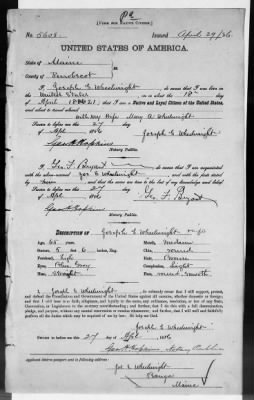 [FORM FOR NATIVE CITIZEN.]
No. 5608. Issued April 29/86
UNITED STATES OF AMERICA.
State of Maine
County of Penobscot
I Joseph G Wheelwright, do swear that I was born in
United States on or about the 18th day of
April 1821; that I am a Native and Loyal Citizen of the United States,
and about to travel abroad
with my Wife Mary A Wheelwright
Sworn to before me this 27 day
of Apl 1886 Joseph G Wheelwright
Geo H Hopkins
Notary Public.
I Geo F Bryant, do swear that I am acquainted
with the above-named Jos G Wheelwright, and with the facts stated
by him, and that the same are true to the best of my knowledge and belief.
Sworn to before me this 27 day
of Apl 1886 Geo F Bryant
Geo H Hopkins
Notary Public.
DESCRIPTION OF Joseph G Wheelwright
Age, 65 years. Mouth, medium
Stature, 5 feet 6 inches, Eng. Chin, round
Forehead, high Hair, Brown
Eyes, Blue Grey Complexion, Light
Nose, Straight Face, round smooth
I Joseph G Wheelwright, do solemnly swear that I will support, protect,
and defend the Constitution and Government of the United States against all enemies, whether domestic or foreign;
and that I will bear true faith, allegiance, and loyalty to the same, any ordinance, resolution, or law of any State,
Convention, or Legislature to the contrary notwithstanding; and further, that I do this with a full determination,
pledge, and purpose, without any mental reservation or evasion whatsoever; and further, that I will well and faithfully
perform all the duties which may be required of me by law. So help me God.
Joseph G Wheelwright
Sworn to before me this 27 day of Apl 1886
Geo H Hopkins Notary Public
Applicant desires passport sent to following address:
Jos G Wheelwright
Bangor
Maine